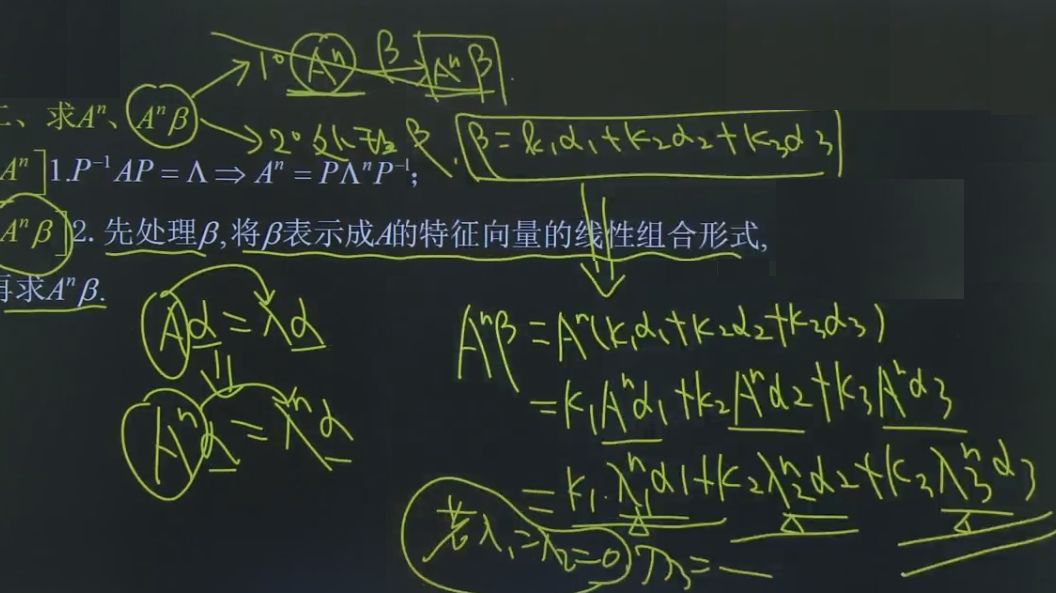 1° Aⁿ β → Aⁿβ.
二、求Aⁿ、Aⁿβ
2° 处理β. β=k₁α₁+k₂α₂+k₃α₃
Aⁿ]1.P⁻¹AP=Λ⇒Aⁿ=PΛⁿP⁻¹;
Aⁿβ]2.先处理β,将β表示成A的特征向量的线性组合形式,
再求Aⁿβ.
Aα=λα
⇓
Aⁿα=λⁿα
Aⁿβ=Aⁿ(k₁α₁+k₂α₂+k₃α₃)
=k₁Aⁿα₁+k₂Aⁿα₂+k₃Aⁿα₃
=k₁·λ₁ⁿα₁+k₂λ₂ⁿα₂+k₃λ₃ⁿα₃
若λ₁=λ₂=0